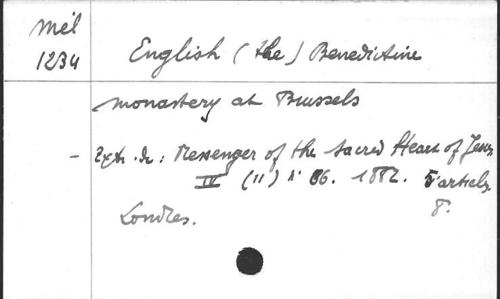 Mél
1234
English (the) Benedictine
monastery at Brussels
- Extr. de: Messenger of the Sacred Heart of Jesus,
IV (11) N° 86. 1882. 5 articles,
Londres. 8°.